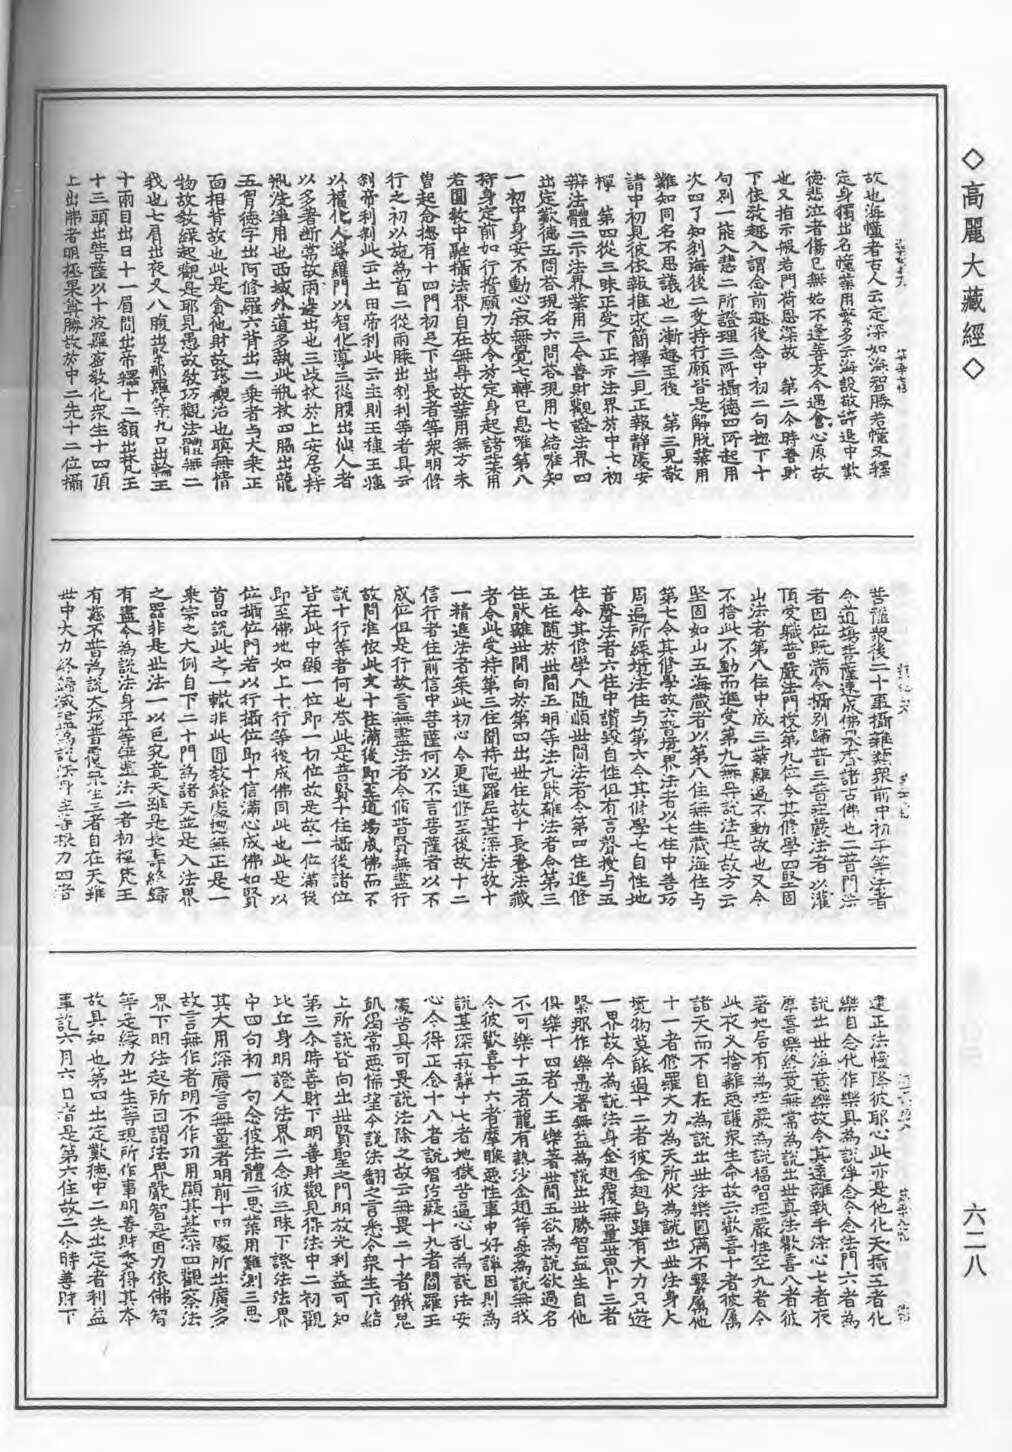 ◇高麗大藏經◇
六二八
故也海幢者古人云定深如海智勝若幢又釋
定身獨出名幢業用繁多云海設敬許退中歎
德悲泣者傷己無始不逢善友今遇會心處故
也又指示般若門荷恩深故　第二今時善財
下依教趣入謂念前趣後念中初二句趣下十
句別一能入悲二所證理三所攝德四所起用
次四了知剎海後二受持行願皆是解脫業用
難知同名不思議也二漸趣至後　第三見敬
諮中初見彼依報推求簡擇二見正報靜慮安
禪　第四從三昧正受下正示法界於中七初
辨法體二示法界業用三今善財觀證法界四
出定歎德五問答現名六問答現用七結唯知
一初中身安不動心寂無覺七轉已息唯第八
持身定前加行誓願力故令於定身起諸業用
若圓教中融攝法界自在無㝵故業用無方未
曾起念揔有十四門初足下出長者等衆明修
行之初以施為首二從兩膝出剎利等者具云
剎帝利剎此云土田帝利此云主則王種王種
以權化人婆羅門以智化導三從腰出仙人者
以多著斷常故兩邊出也三歧杖於上安居持
瓶洗淨用也西域外道多執此瓶杖四脇出龍
五胷德字出阿修羅六背出二乘者与大乘正
面相背故也此是貪他財故慈觀治也瞋無情
物故教緣起觀是耶見愚故教巧觀法體無二
我也七肩出夜叉八腹出緊那羅等九口出輪王
十兩目出日十一眉間出帝釋十二額出梵王
十三頭出菩薩以十波羅蜜教化衆生十四頂
上出佛者明極果尊勝故於中二先十二位攝
菩薩衆後二十事攝雜類衆前中初平等法者
今道場菩薩速成佛果齊諸古佛也二普門法
者因位既滿今攝別歸普三普莊嚴法者以灌
頂受職普嚴法門授第九位今其修學四堅固
山法者第八住中成三業離過不動故也又今
不捨此不動而進受第九無㝵說法是故方云
堅固如山五海藏者以第八住無生藏海住与
第七令其修學故六普境界法者以七住中善巧
周遍所緣境法住与第六令其修學七自性地
音聲法者六住中讚毀自性但有言聲授与五
住令其修學八隨順世間法者令第四住進修
五住隨於世間五明等法九猒離法者令第三
住猒離世間向於第四出世住故十長養法藏
者令此受持第三住聞持陁羅尼甚深法故十
一精進法者築此初心令更進修至後故十二
信行者住前信中菩薩何以不言菩薩者以不
成位但是行故言無盡法者令修普賢無盡行
故問准依此文十住滿後即至道場成佛而不
說十行等者何也答此是普賢十住攝後諸位
皆在此中顯一位即一切位故是故一位滿後
即至佛地如上十行等後成佛同此也此是以
位攝位門若以行攝位即十信滿心成佛如賢
首品說此之一轍非此圓教餘處揔無正是一
乘宗之大例自下二十門為諸天並是入法界
之器非是世法一以色究竟天雖是長壽終歸
有盡今為說法身平等無盡法二者初禪梵王
有慈不普為說大慈普覆衆生三者自在天雖
世中大力終歸滅盡為說法身生等根力四者
建正法幢降彼耶心此亦是他化天攝五者化
樂自念化作樂具為說淨念令念法門六者為
說出世海意樂故令其遠離執手染心七者夜
摩喜樂終竟無常為說出世真法歡喜八者彼
著地居有為莊嚴為說福智莊嚴性空九者令
此夜叉捨離惡護衆生命故云歡喜十者彼屬
諸天而不自在為說出世法樂圓滿不繫屬他
十一者修羅大力為天所伏為說出世法身大
境物莫能過十二者彼金翅鳥雖有大力只遊
一界故今為說法身金翅覆無量世界十三者
緊那作樂愚著無益為說出世勝智益生自他
俱樂十四者人王樂著世間五欲為說欲過名
不可樂十五者龍有熱沙金翅等憂為說無我
令彼歡喜十六者摩睺惡性軍中好諍因則為
說甚深寂靜十七者地獄苦逼心乱為說法安
心令得正念十八者說智治癡十九者閻羅王
處苦具可畏說法除之故云無畏二十者餓鬼
飢渴常惡悕望今說法翻之言悉令衆生下結
上所說皆向出世賢聖之門明放光利益可知
第三介時善財下明善財觀見得法中二初觀
比丘身明證人法界二念彼三昧下證法法界
中四句初一句念彼法體二思業用難測三思
其大用深廣言無量者明前十四處所出廣多
故言無作者明不作功用顯其甚深四觀察法
界下明法起所因謂法界嚴智是因力依佛智
等是緣力出生等現所作事明善財委得其本
故具知也第四出定歎德中二先出定者利益
事訖六月六日者是第六住故二今時善財下